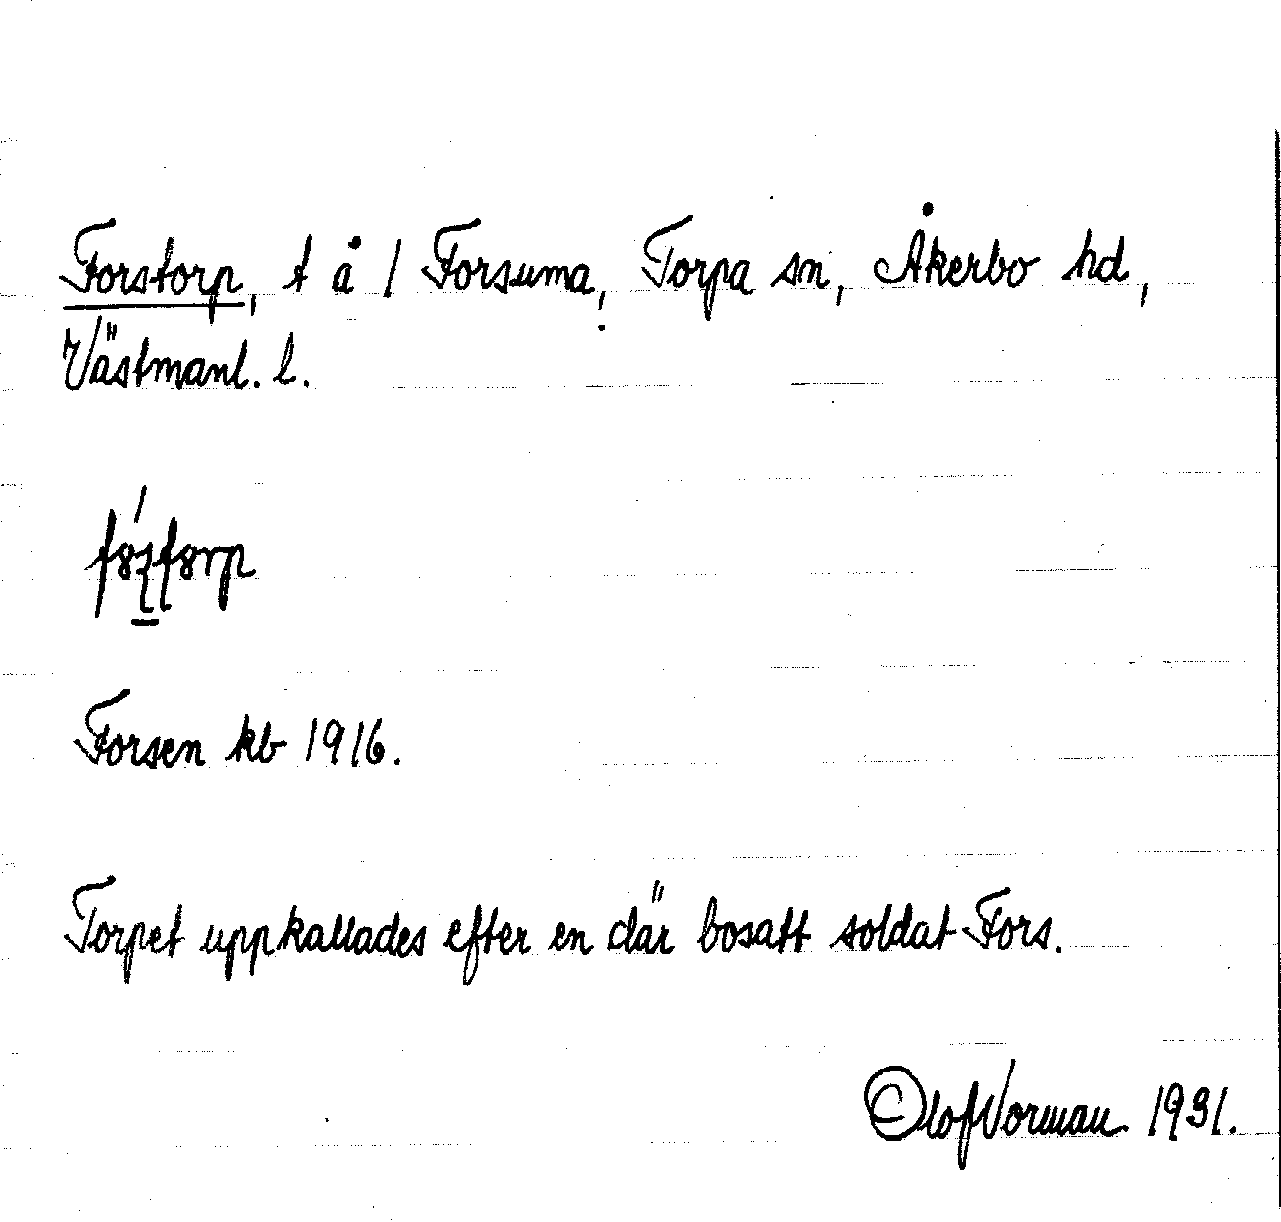 Forstorp, t å 1 Forsuma, Torpa sn, Åkerbo hd,
Västmanl. l.
Forsen kb 1916.
Torpet uppkallades efter en där bosatt soldat Fors.
Olof Vorman 1931.